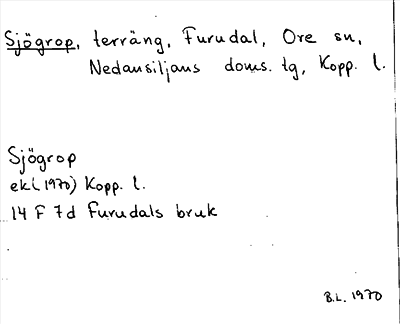 Sjögrop, terräng, Furudal, Ore sn,
Nedansiljans doms. tg, Kopp. l.
Sjögrop
ek(1970) Kopp. l.
14 F 7d Furudals bruk
B.L. 1970